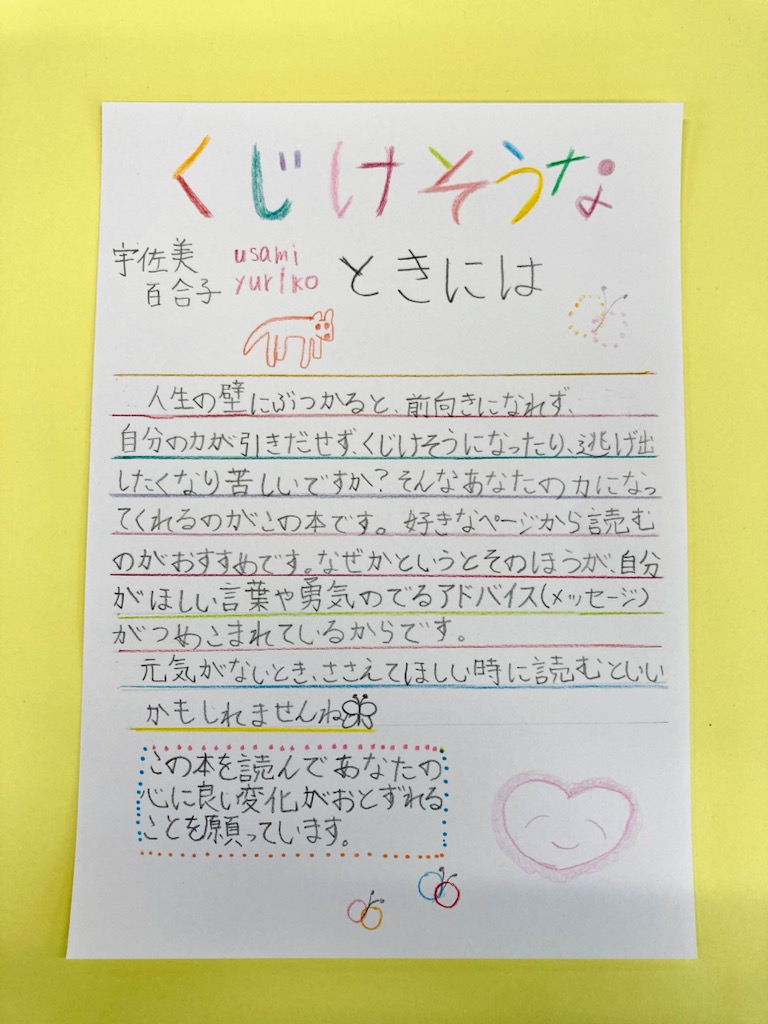 くじけそうな
ときには
宇佐美
百合子
usami
yuriko
人生の壁にぶつかると、前向きになれず、
自分の力が引きだせず、くじけそうになったり、逃げ出
したくなり苦しいですか?そんなあなたの力になっ
てくれるのがこの本です。好きなページから読む
のがおすすめです。なぜかというとそのほうが、自分
がほしい言葉や勇気のでるアドバイス(メッセージ)
がつめこまれているからです。
元気がないとき、ささえてほしい時に読むといい
かもしれませんね
この本を読んであなたの
心に良い変化がおとずれる
ことを願っています。